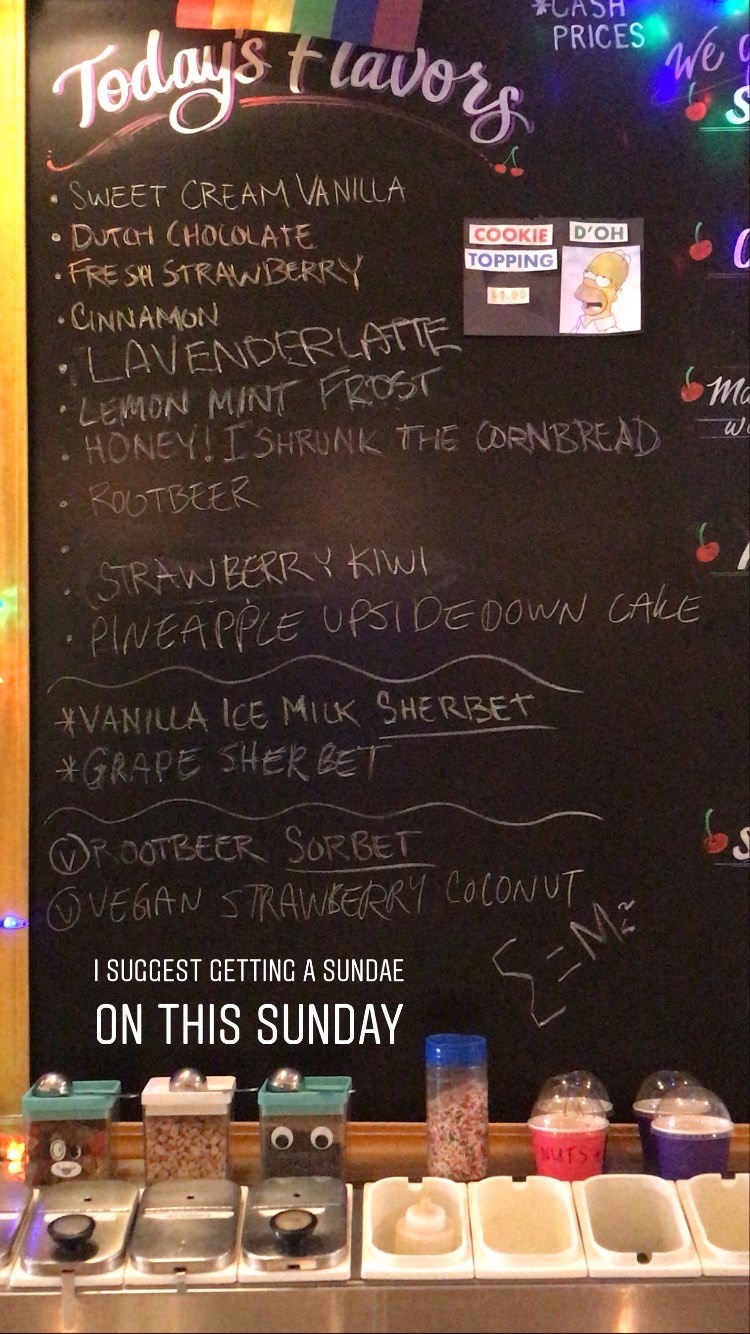 *CASH
PRICES
Today's Flavors
We
• SWEET CREAM VANILLA
• DUTCH CHOCOLATE
• FRESH STRAWBERRY
• CINNAMON
• LAVENDER LATTE
• LEMON MINT FROST
• HONEY! I SHRUNK THE CORNBREAD
• ROOTBEER
• STRAWBERRY KIWI
• PINEAPPLE UPSIDEDOWN CAKE
*VANILLA ICE MILK SHERBET
*GRAPE SHERBET
Ⓥ ROOTBEER SORBET
Ⓥ VEGAN STRAWBERRY COCONUT
COOKIE D'OH
TOPPING
$1.00
I SUGGEST GETTING A SUNDAE
ON THIS SUNDAY
NUTS